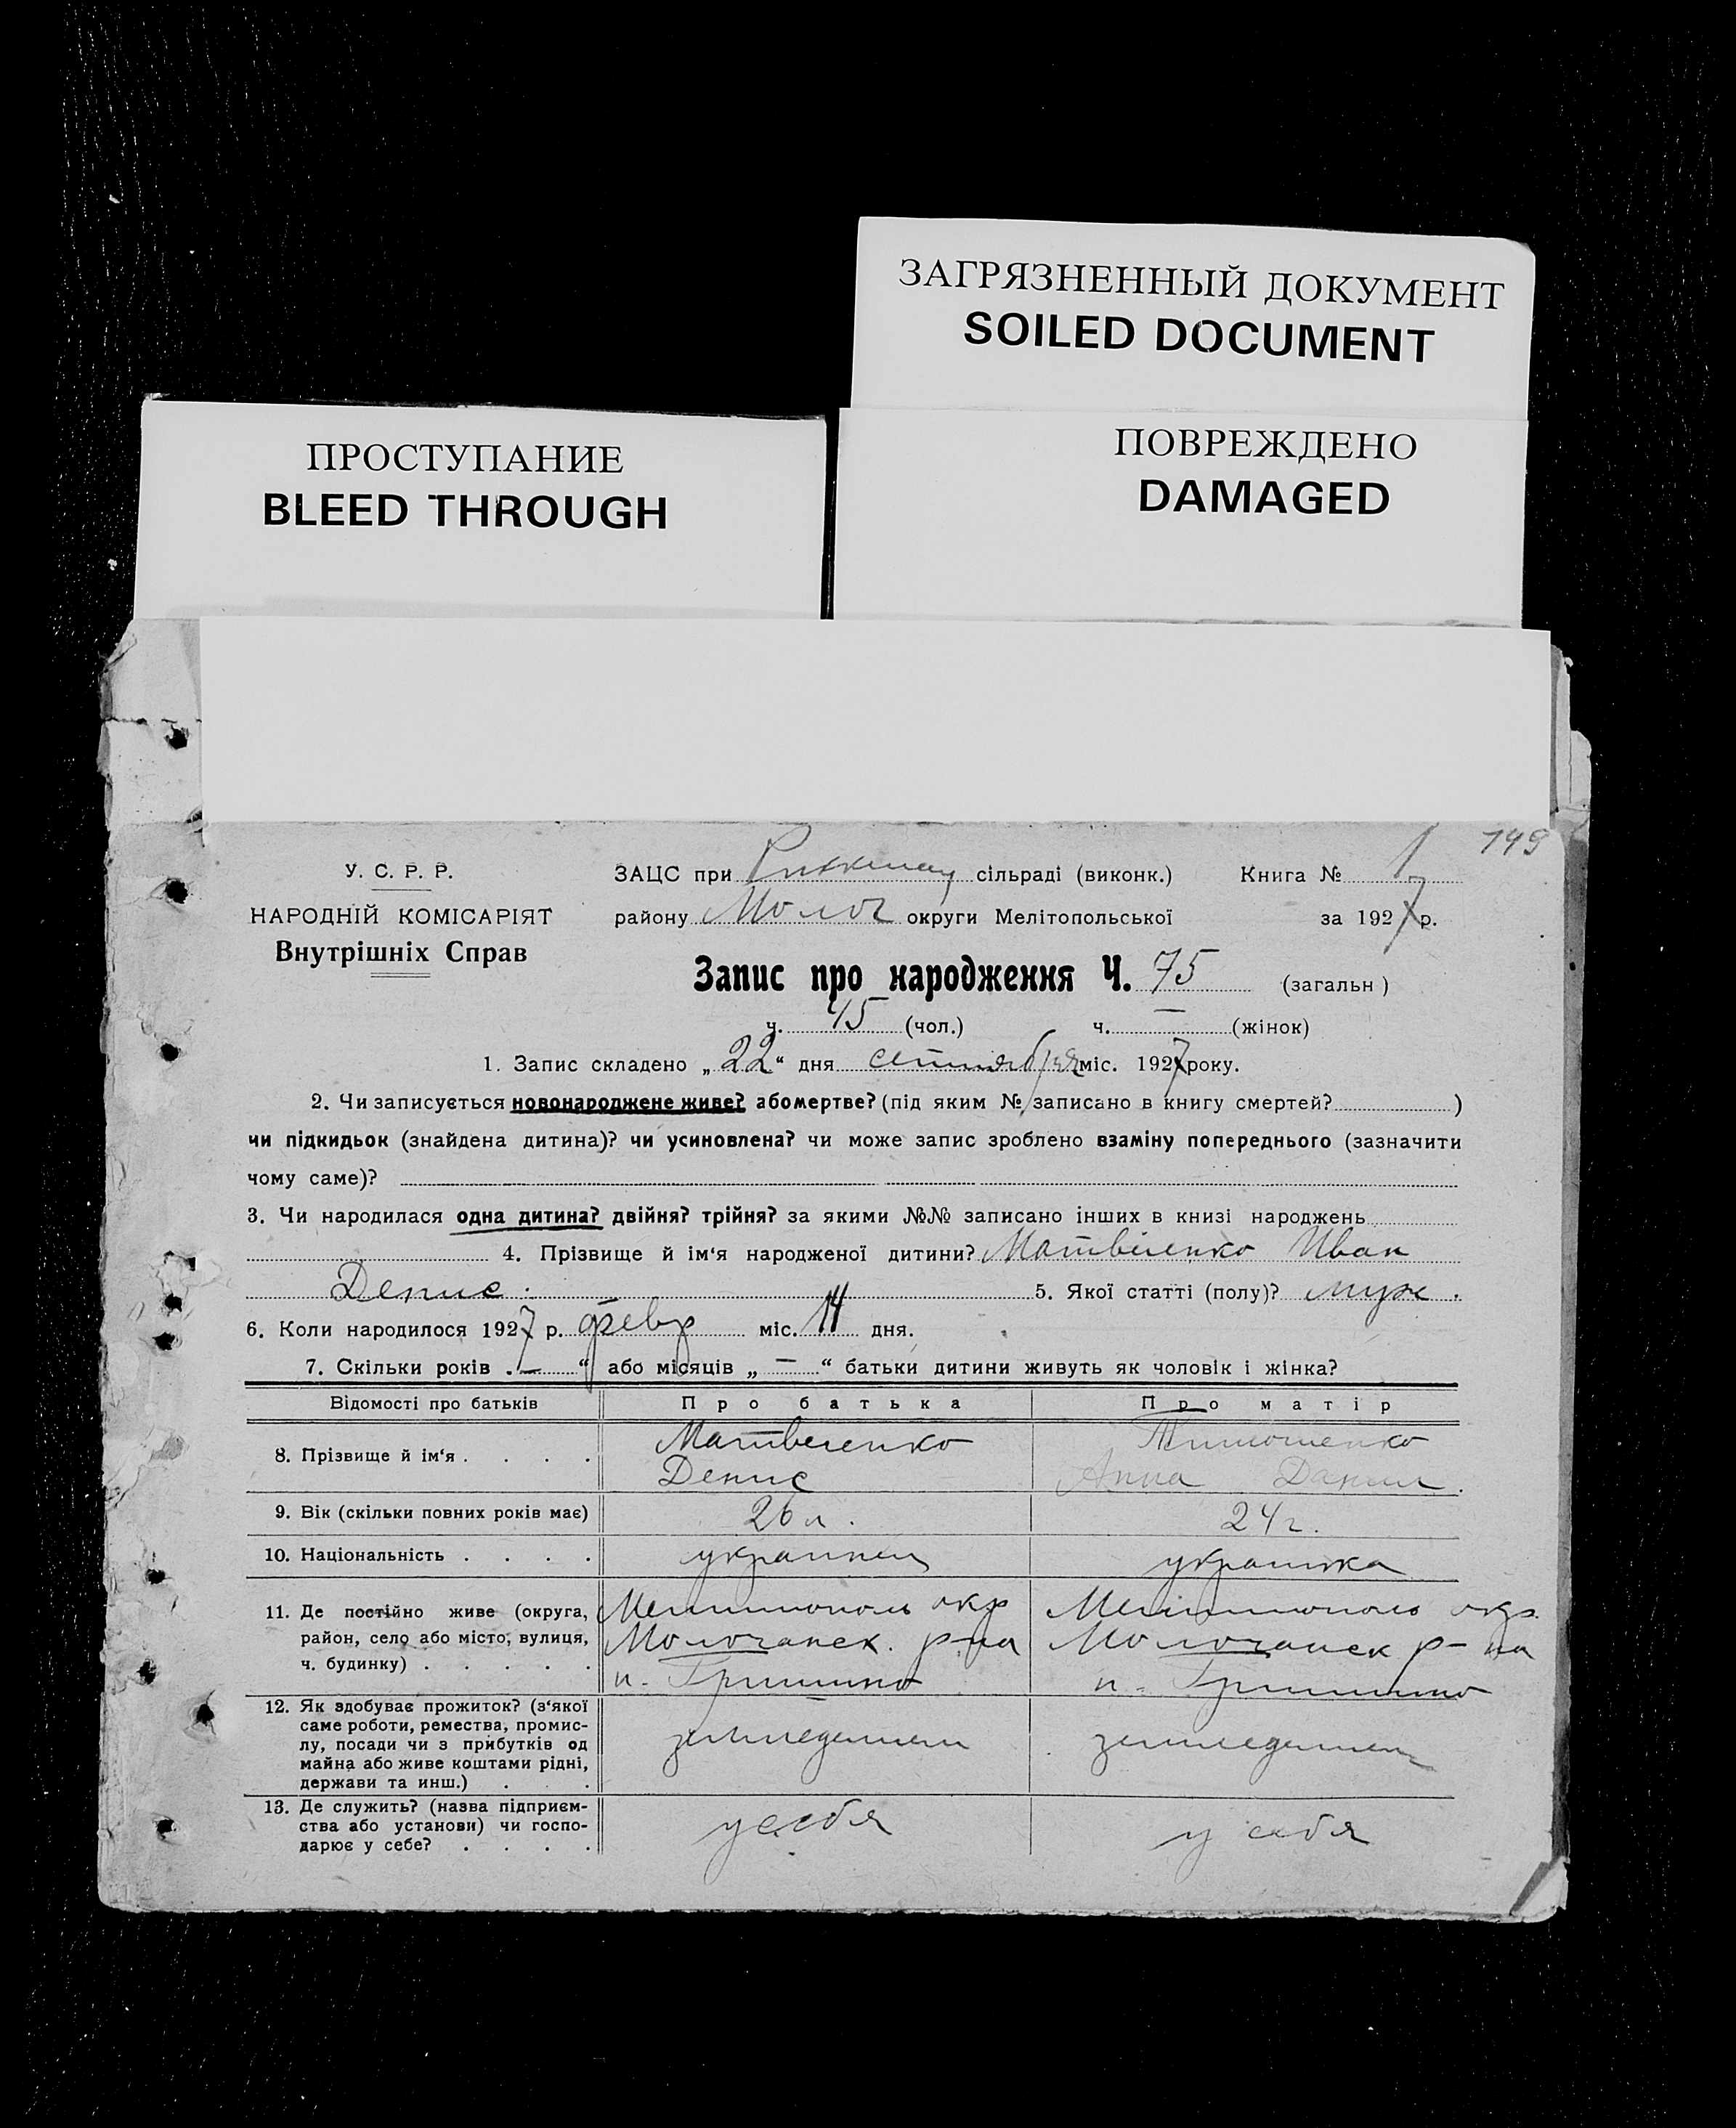 ЗАГРЯЗНЕННЫЙ ДОКУМЕНТ
SOILED DOCUMENT
ПРОСТУПАНИЕ
BLEED THROUGH
ПОВРЕЖДЕНО
DAMAGED
149
У. С. Р. Р.
НАРОДНІЙ КОМІСАРІЯТ
Внутрішніх Справ
ЗАЦС при сільраді (виконк.) Книга № 1
району Молоч округи Мелітопольської за 1927 р.
Запис про народження Ч. 75 (загальн)
ч. 45 (чол.) ч. — (жінок)
1. Запис складено „22“ дня сентября міс. 1927 року.
2. Чи записується новонароджене живе? або мертве? (під яким № записано в книгу смертей? )
чи підкидьок (знайдена дитина)? чи усиновлена? чи може запис зроблено взаміну попереднього (зазначити
чому саме)?
3. Чи народилася одна дитина? двійня? трійня? за якими №№ записано інших в книзі народжень
4. Прізвище й ім‘я народженої дитини? Матвиенко Иван
Денис. 5. Якої статті (полу)? муж.
6. Коли народилося 1927 р. февр міс. 14 дня.
7. Скільки років „—“ або місяців „—“ батьки дитини живуть як чоловік і жінка?
Відомості про батьків Про батька Про матір
8. Прізвище й ім‘я . . . . Матвиенко Денис Тимошенко Анна Данил.
9. Вік (скільки повних років має) 26 л. 24 г.
10. Національність . . . . украинец украинка
11. Де постійно живе (округа, район, село або місто, вулиця, ч. будинку) . . . . . Мелитополь окр Молочанск. р-на п. Гришино Мелитополь окр. Молочанск р-на п. Гришино
12. Як здобуває прожиток? (з‘якої саме роботи, ремества, промислу, посади чи з прибутків од майна або живе коштами рідні, держави та инш.) . . . земледелием земледелием
13. Де служить? (назва підприємства або установи) чи господарює у себе? . . . . у себя у себя